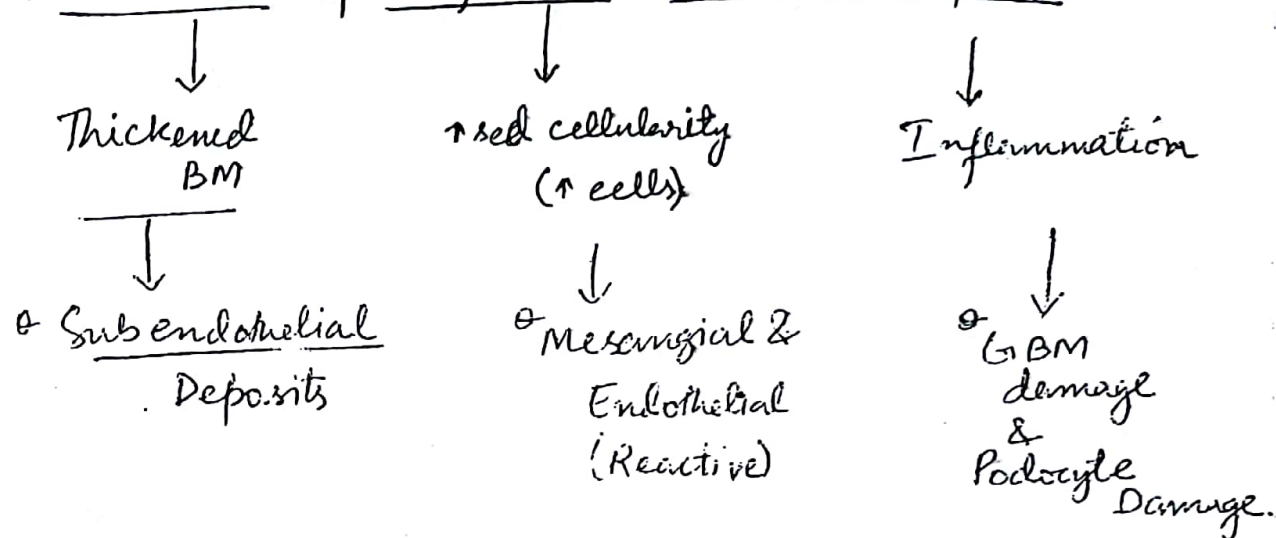 Thickened
BM
↑sed cellularity
(↑ cells)
Inflammation
Subendothelial
Deposits
Mesangial &
Endothelial
(Reactive)
GBM
damage
&
Podocyte
Damage.